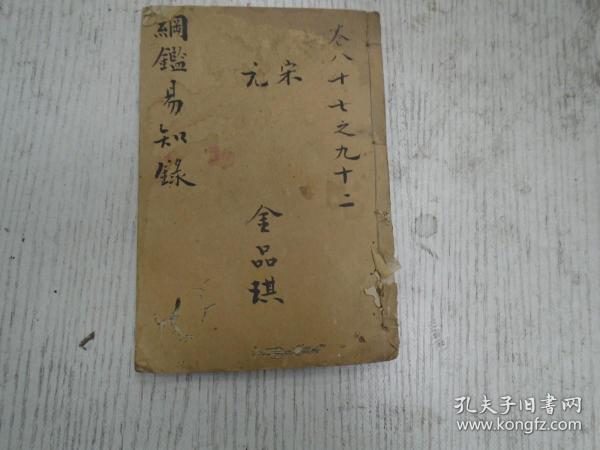 卷八十七之九十二
宋
元
金品琪
綱鑑易知錄
孔夫子旧书网
www.kongfz.com